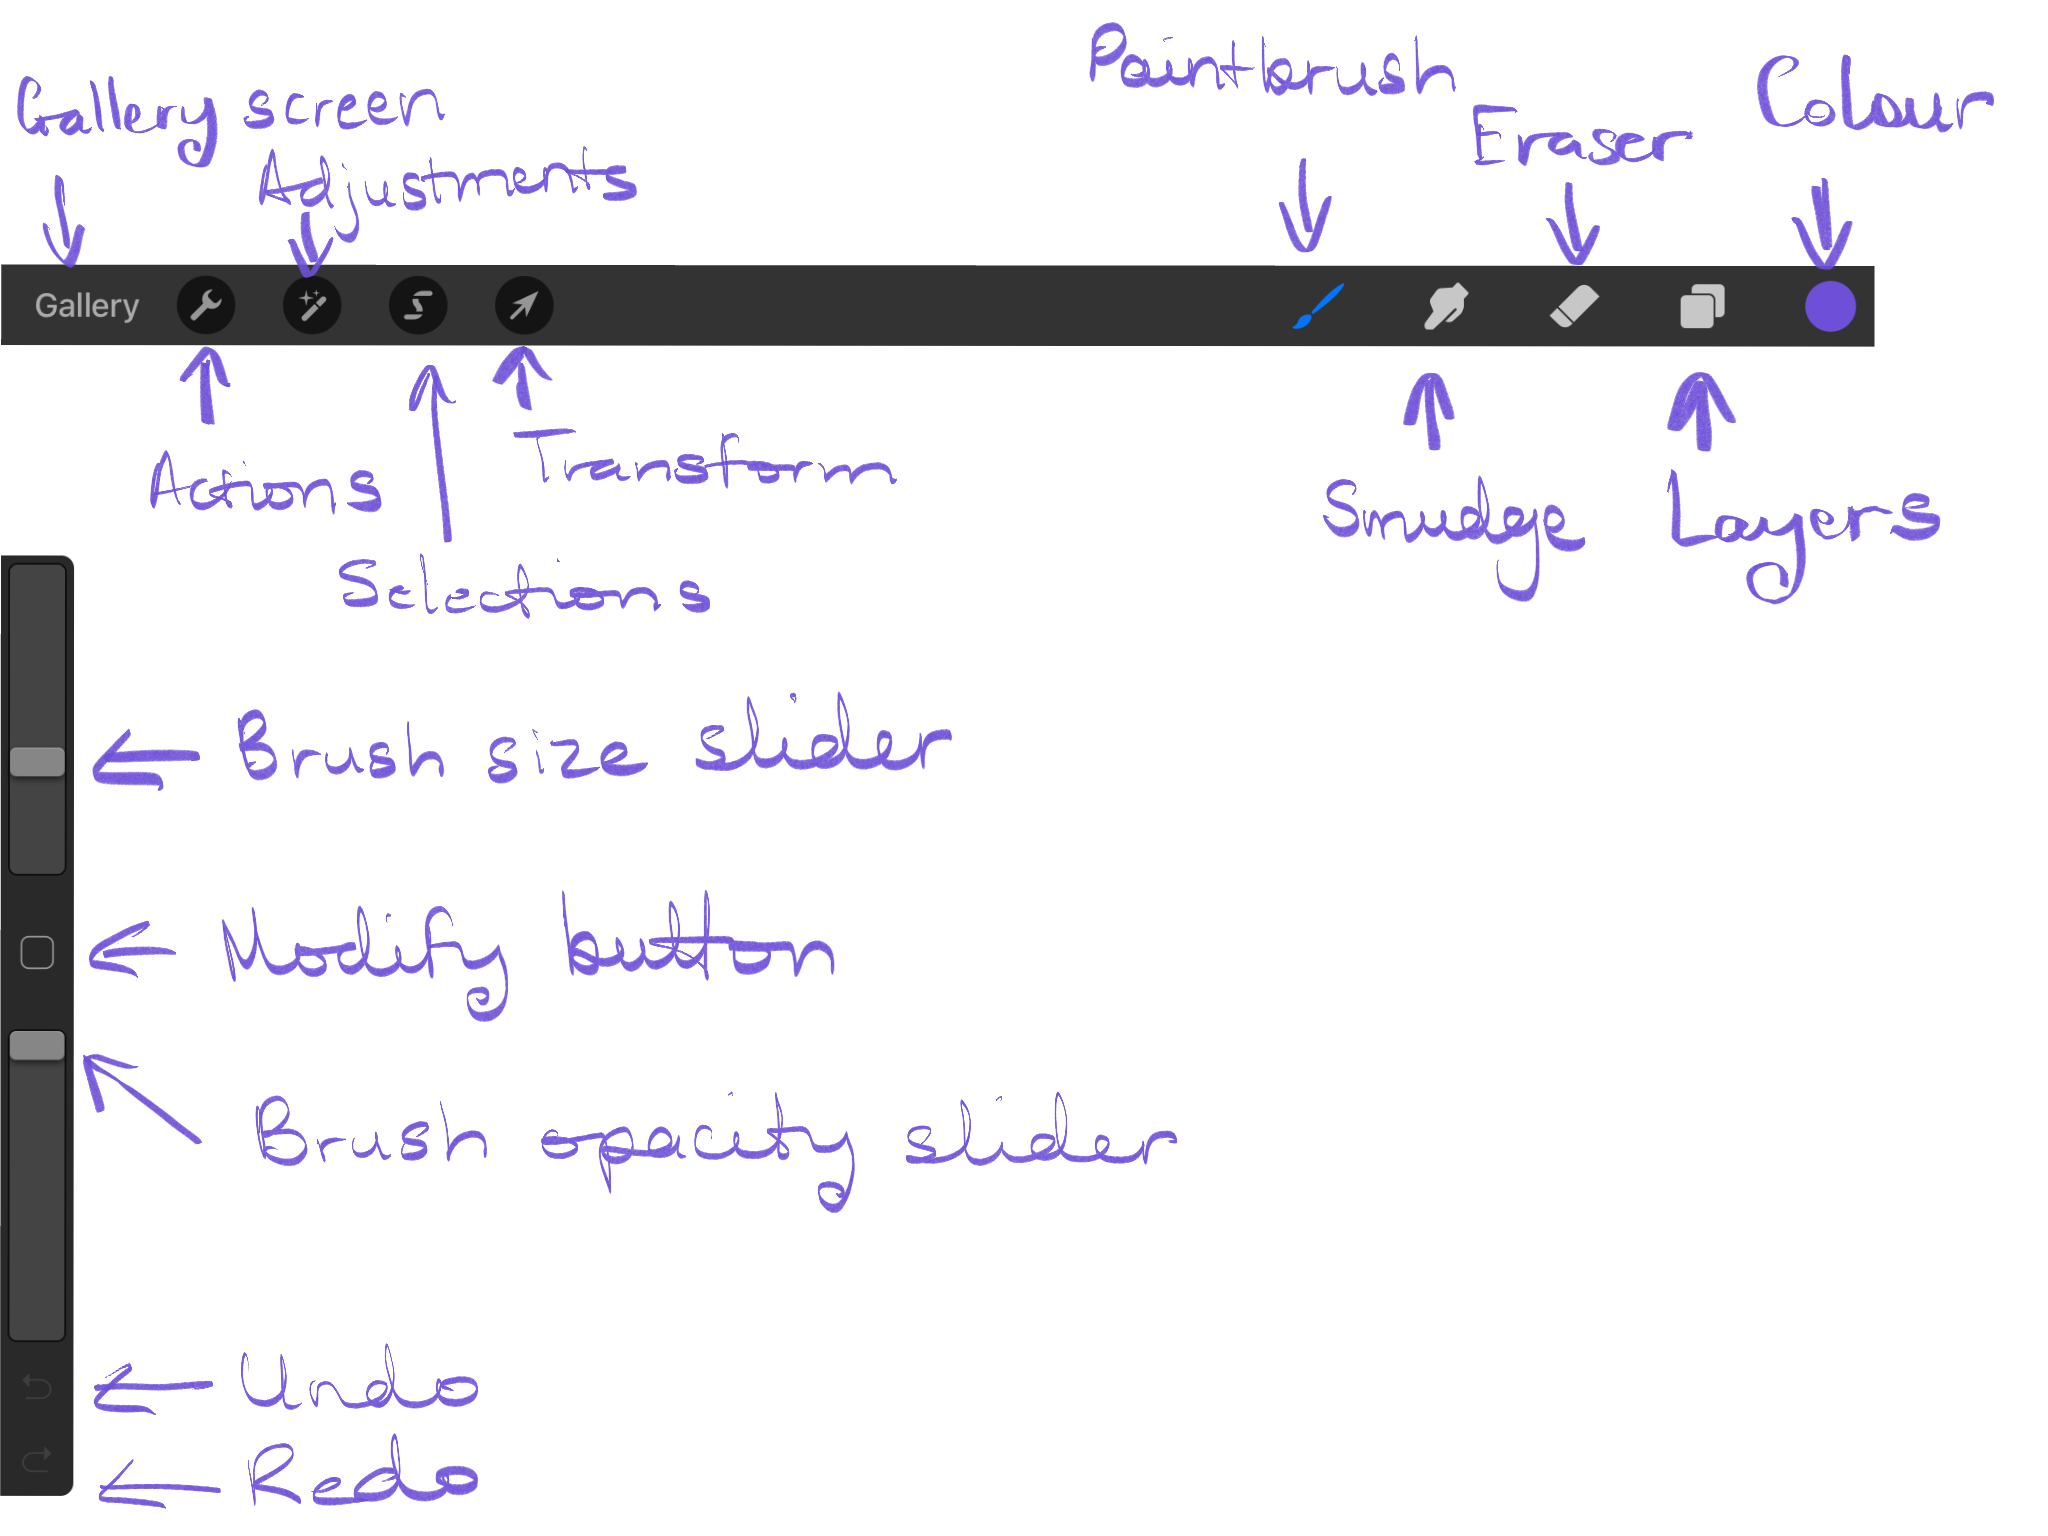 Paintbrush
Colour
Gallery screen
Eraser
Adjustments
Gallery
Actions
Transform
Smudge
Layers
Selections
Brush size slider
Modify button
Brush opacity slider
Undo
Redo